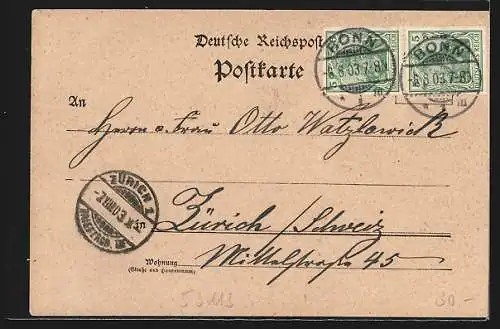 Deutsche Reichspost
Postkarte
BONN
-6.8.03.7-8
BONN
-6.8.03.7-8
An
Herrn u. Frau Otto Watzlawick
ZÜRICH 1
-7.VIII.03
in Zürich / Schweiz
Wohnung
(Straße und Hausnummer)
Mittelstraße 45
30-